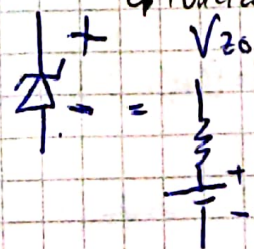 + V_{Z0}
- =
+
-